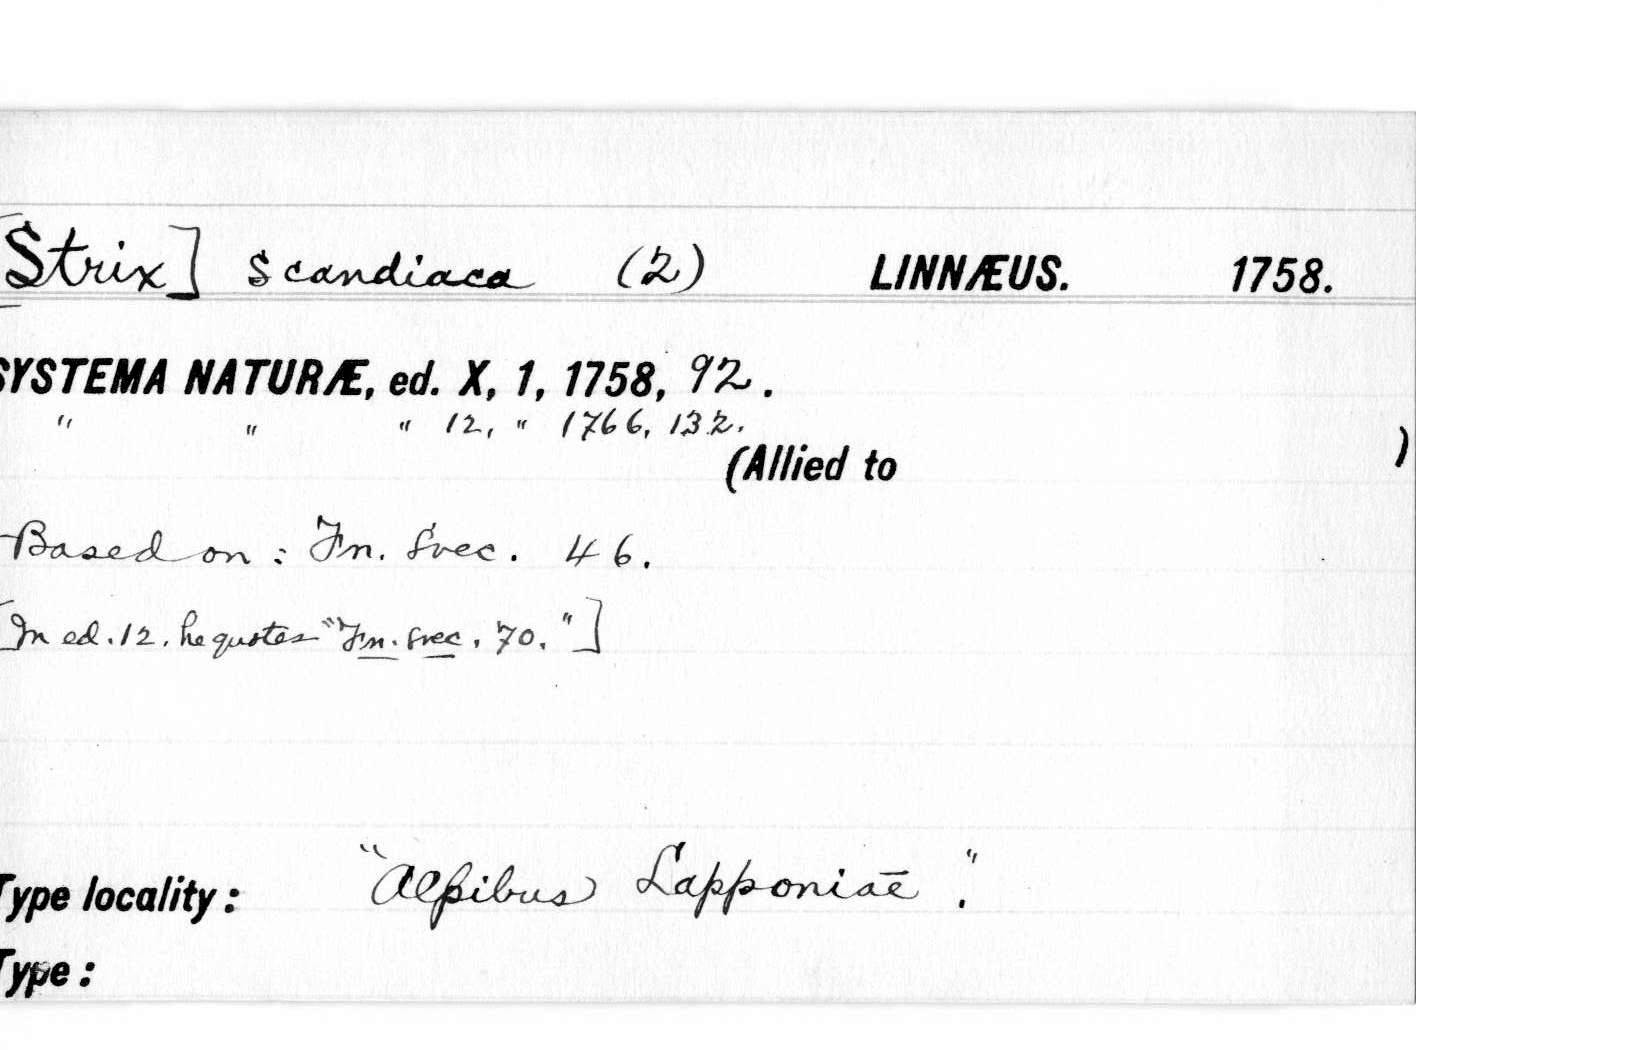 [Strix] scandiaca (2) LINNÆUS. 1758.
SYSTEMA NATURÆ, ed. X, 1, 1758, 92.
" " " 12, " 1766, 132.
(Allied to )
Based on: Fn. Svec. 46.
[In ed. 12. he quotes "Fn. Svec. 70."]
Type locality: "Alpibus Lapponiae".
Type: